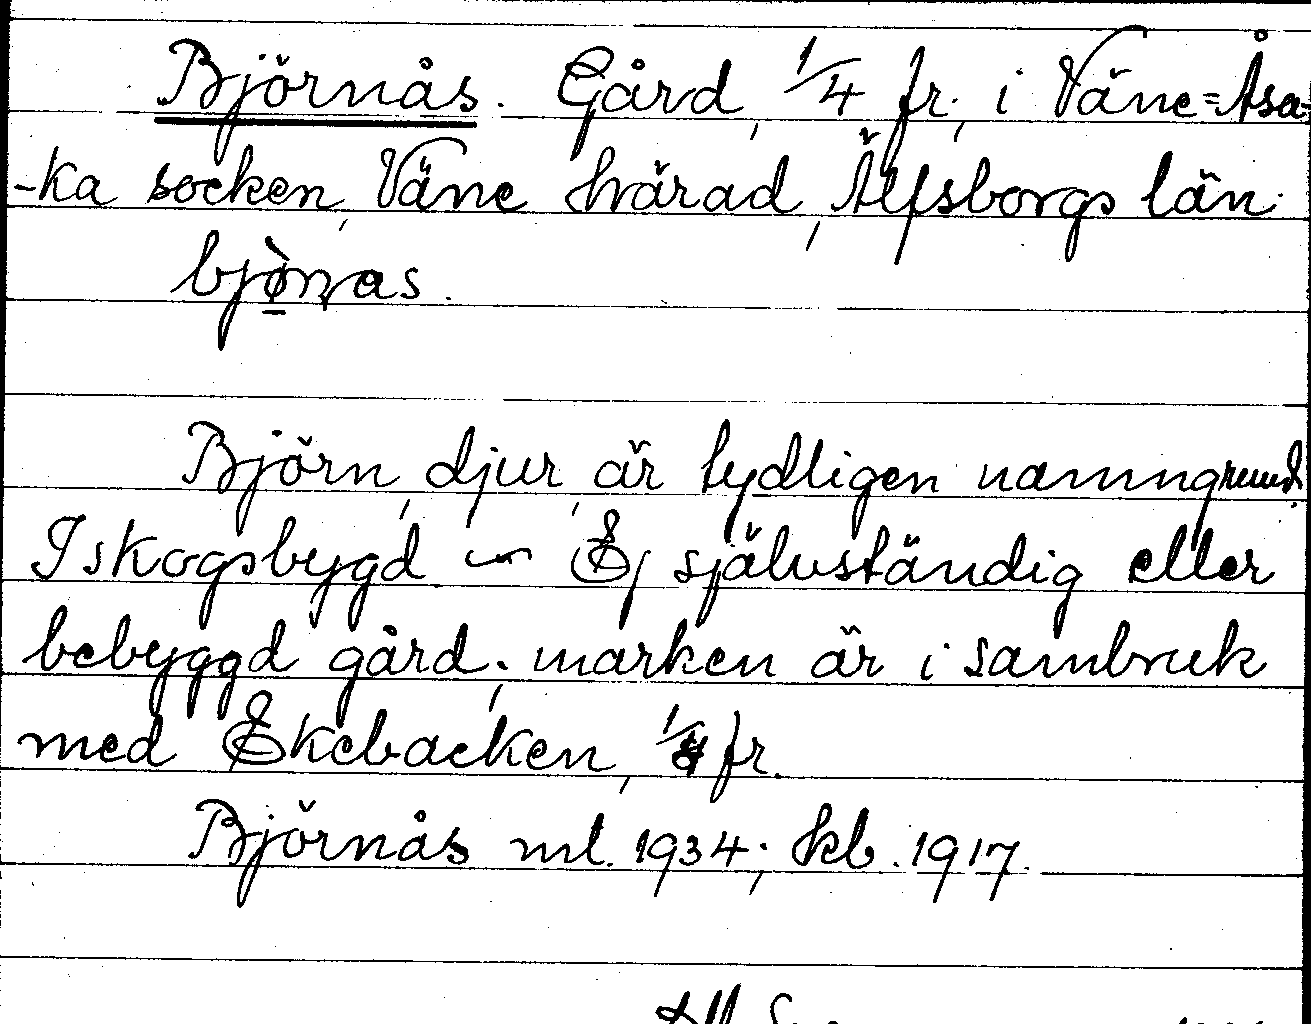 Björnås. Gård, 1/4 fr., i Väne=Åsa-
-ka socken, Väne härad, Älfsborgs län.
bjò̱nas.
Björn, djur, är tydligen namngrund.
I skogsbygd. — Ej självständig eller
bebyggd gård; marken är i sambruk
med Ekebacken, 1/4 fr.
Björnås ml. 1934; kb. 1917.